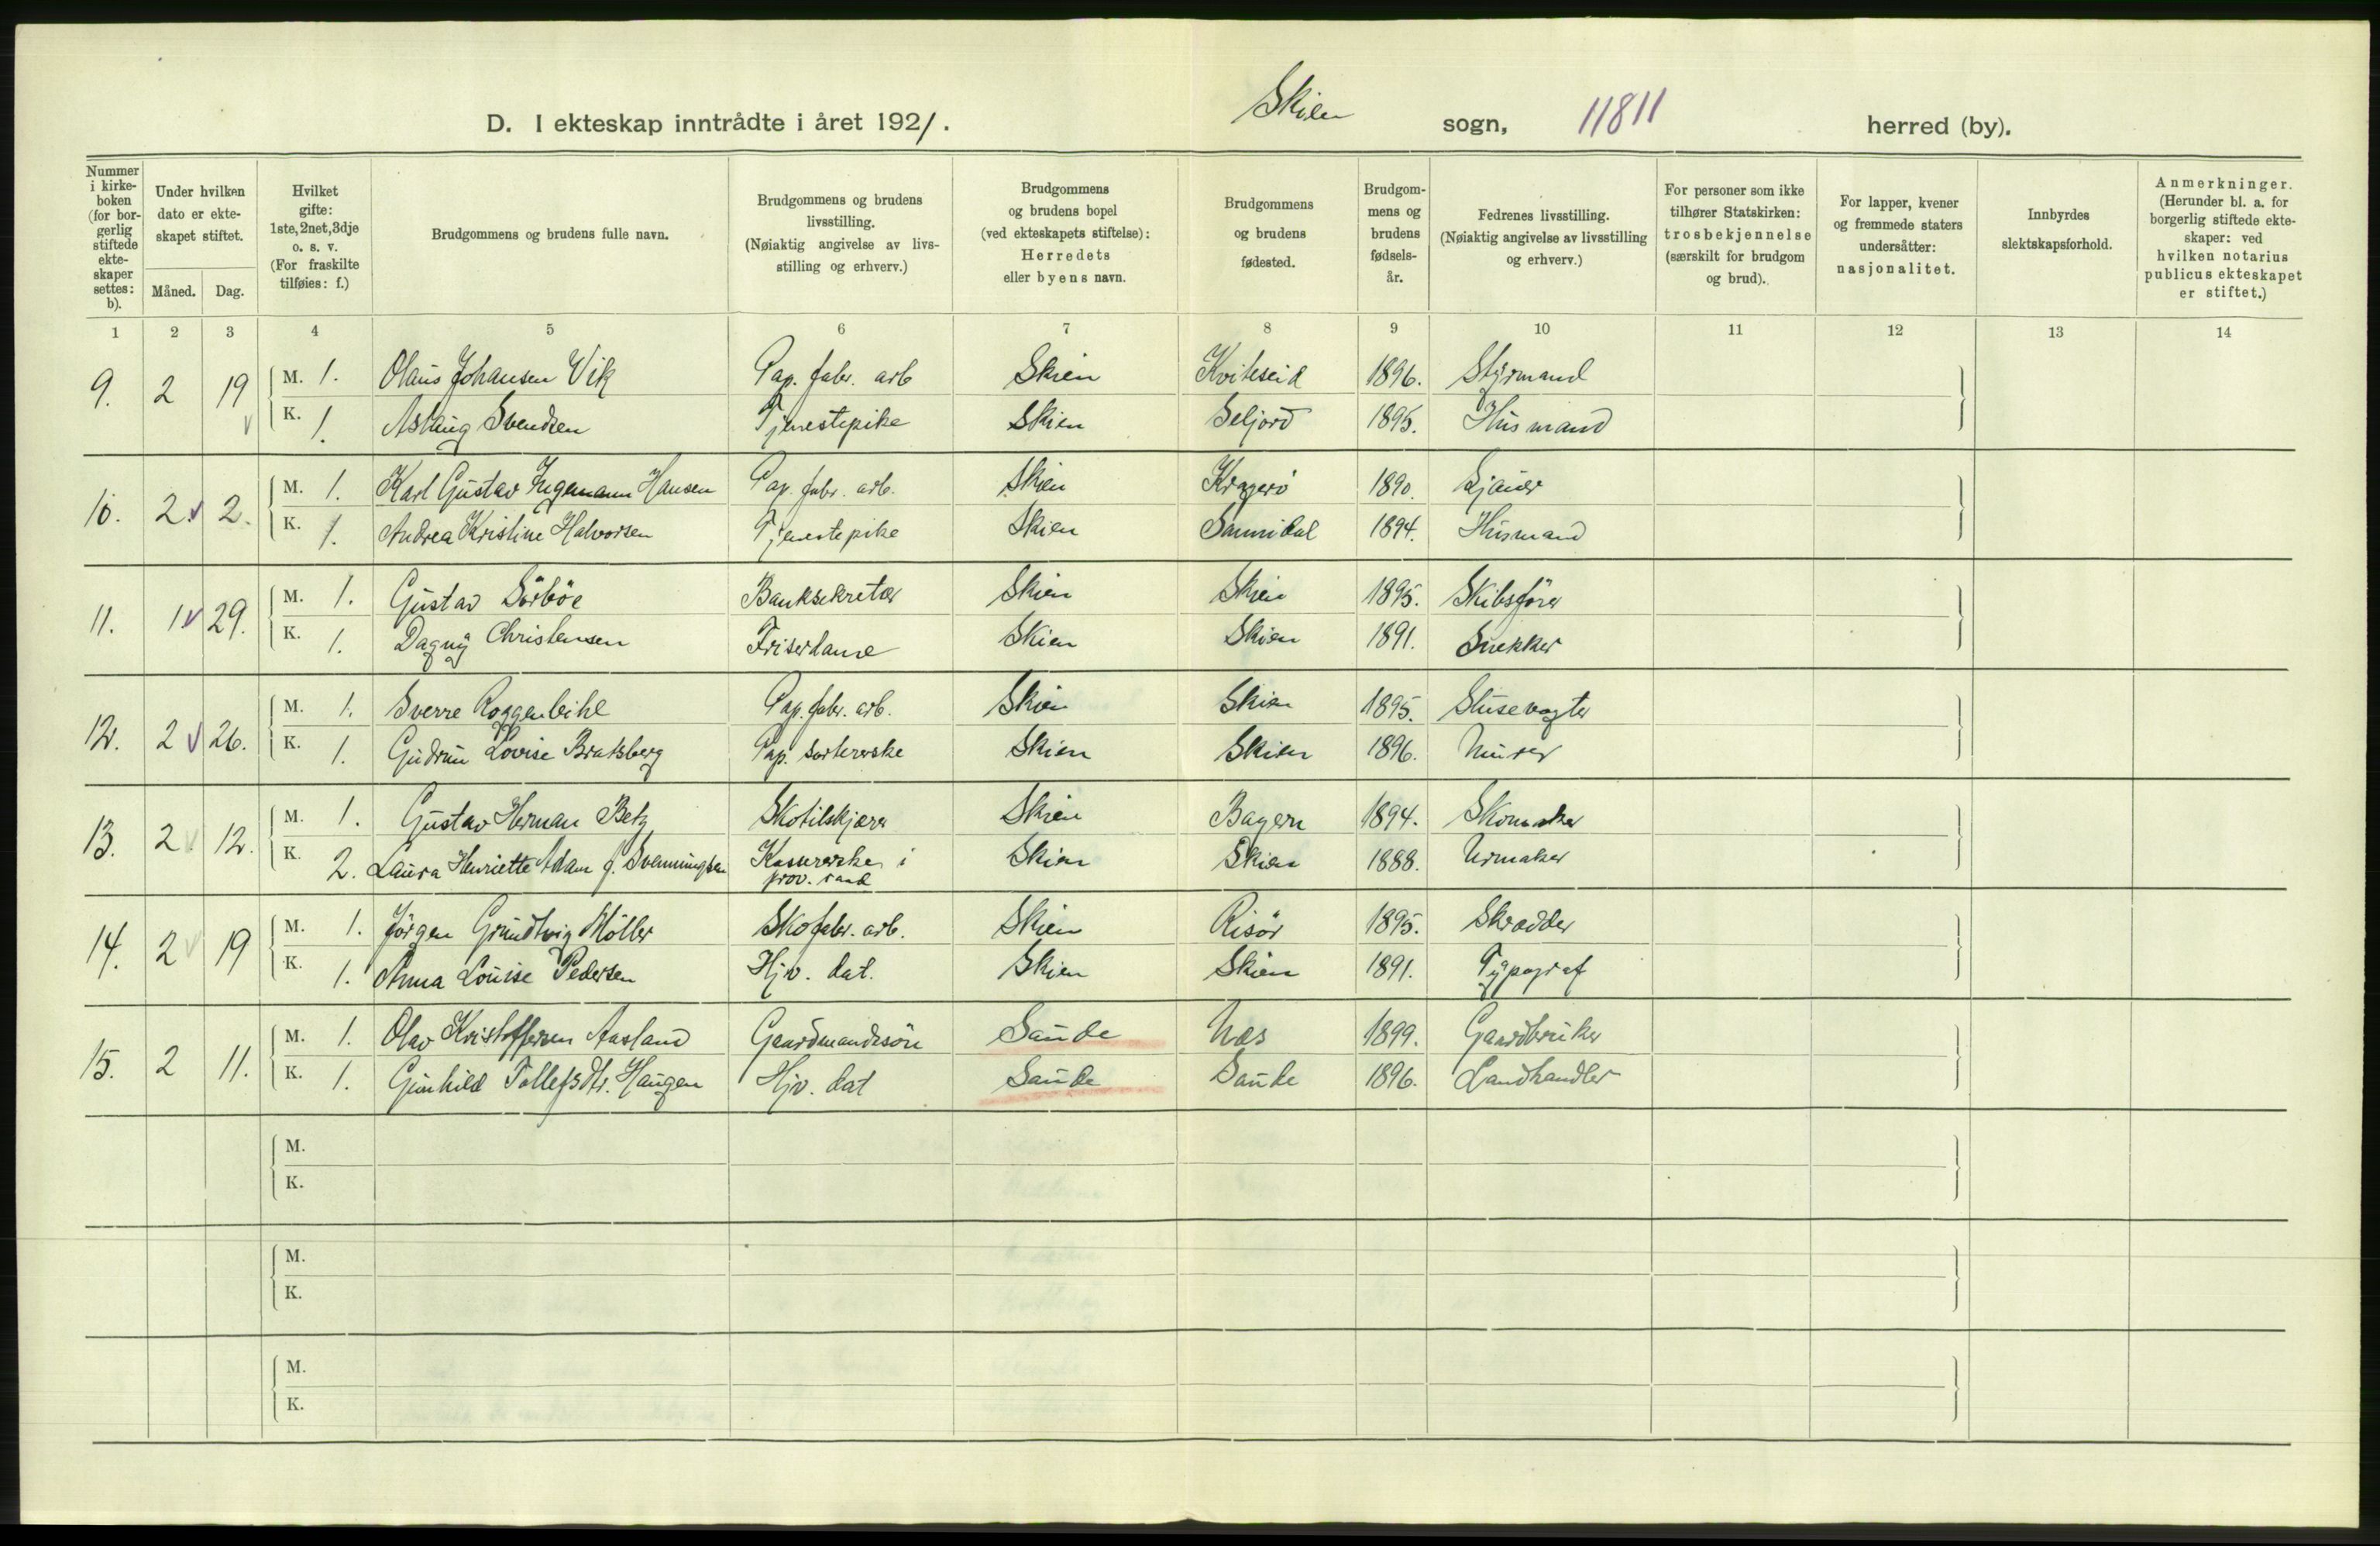 D. I ekteskap inntrådte i året 1921. Skien sogn, 11811 herred (by).
Nummer i kirkeboken (for borgerlig stiftede ekteskaper settes: b).
Under hvilken dato er ekteskapet stiftet.
Måned. Dag.
Hvilket gifte: 1ste, 2net, 3dje o. s. v. (For fraskilte tilføies: f.)
Brudgommens og brudens fulle navn.
Brudgommens og brudens livsstilling. (Nøiaktig angivelse av livsstilling og erhverv.)
Brudgommens og brudens bopel (ved ekteskapets stiftelse): Herredets eller byens navn.
Brudgommens og brudens fødested.
Brudgommens og brudens fødselsår.
Fedrenes livsstilling. (Nøiaktig angivelse av livsstilling og erhverv.)
For personer som ikke tilhører Statskirken: trosbekjennelse (særskilt for brudgom og brud).
For lapper, kvener og fremmede staters undersåtter: nasjonalitet.
Innbyrdes slektskapsforhold.
Anmerkninger. (Herunder bl. a. for borgerlig stiftede ekteskaper: ved hvilken notarius publicus ekteskapet er stiftet.)
1 2 3 4 5 6 7 8 9 10 11 12 13 14
9. 2 19 M. 1. Olaus Johansen Vik Pap. fabr. arb Skien Kviteseid 1896. Styrmand
K. 1. Aslaug Svendsen Tjenestepike Skien Seljord 1895. Husmand
10. 2 2. M. 1. Karl Gustav Ingemann Hansen Pap. fabr. arb. Skien Kragerö 1890. Sjauer
K. 1. Andrea Kristine Halvorsen Tjenestepike Skien Sannidal 1894. Husmand
11. 1 29. M. 1. Gustav Sörböe Banksekretær Skien Skien 1895. Skibsförer
K. 1. Dagny Christensen Friserdame Skien Skien 1891. Snekker
12. 2 26. M. 1. Sverre Roggenbihl Pap. fabr. arb. Skien Skien 1895. Slusevogter
K. 1. Gudrun Lovise Bratsberg Pap. sortererske Skien Skien 1896. Murer
13. 2 12. M. 1. Gustav Herman Betz Skotilskjærer Skien Bayern 1894. Skomaker
K. 2. Laura Henriette Adam f. Svenningsen Kassererske i Skien Skien 1888. Urmaker
prov. raad
14. 2 19 M. 1. Jörgen Grundtvig Möller Skofabr. arb. Skien Risör 1895. Skrædder
K. 1. Anna Louise Pedersen Hjv. dat. Skien Skien 1891. Typograf
15. 2 11. M. 1. Olav Kristoffersen Aasland Gaardmandssön Saude Næs 1899. Gaardbruker
K. 1. Gunhild Tollefsdtr. Haugen Hjv. dat Saude Saude 1896. Landhandler
M.
K.
M.
K.
M.
K.